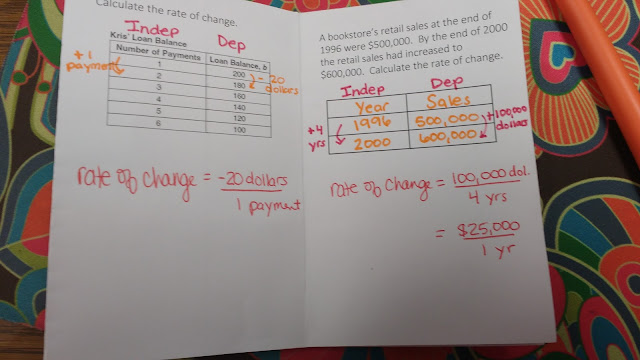 Calculate the rate of change.
Indep Dep
Kris' Loan Balance
Number of Payments Loan Balance, b
1 200
2 180
3 160
4 140
5 120
6 100
+1
payment
-20
dollars
rate of change = -20 dollars
1 payment
A bookstore's retail sales at the end of
1996 were $500,000. By the end of 2000
the retail sales had increased to
$600,000. Calculate the rate of change.
Indep Dep
Year Sales
1996 500,000
2000 600,000
+4
yrs
+100,000
dollars
rate of change = 100,000 dol.
4 yrs
= $25,000
1 yr